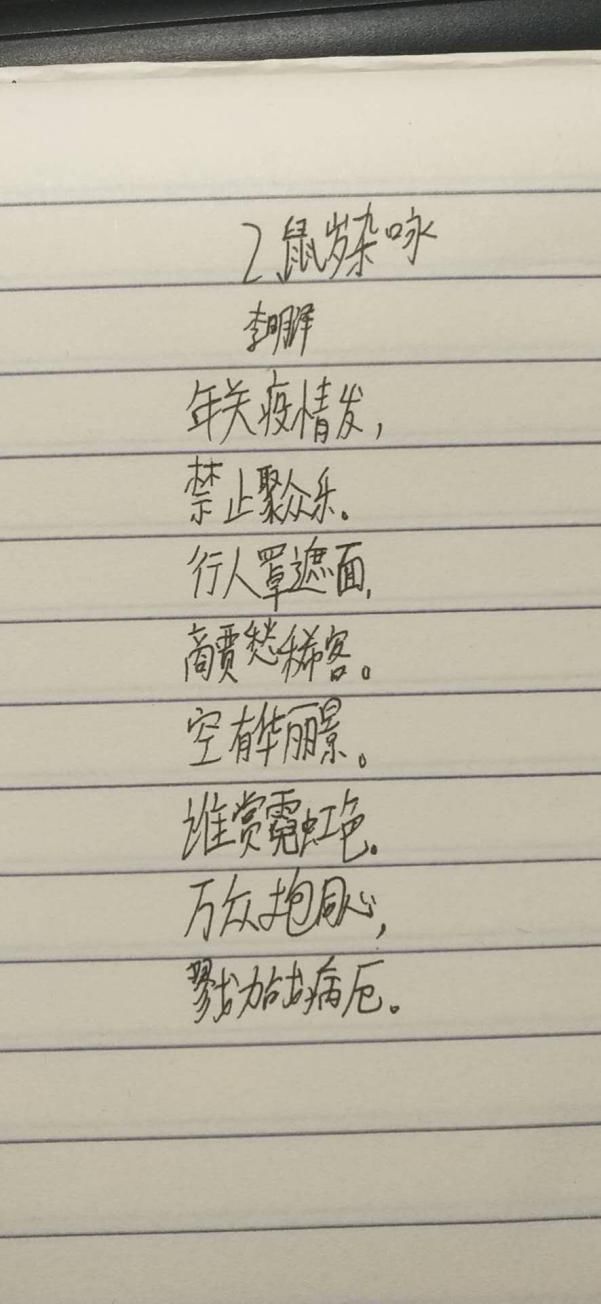 2、鼠岁杂咏
李明
年关疫情发，
禁止聚众乐。
行人罩遮面，
商贾愁稀客。
空有华丽景。
谁赏霓虹色。
万众抱同心，
戮力战病厄。